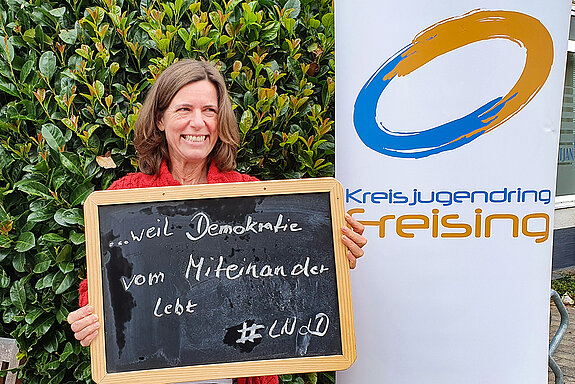 ...weil Demokratie
vom Miteinander
lebt
#LNdD
Kreisjugendring
Freising